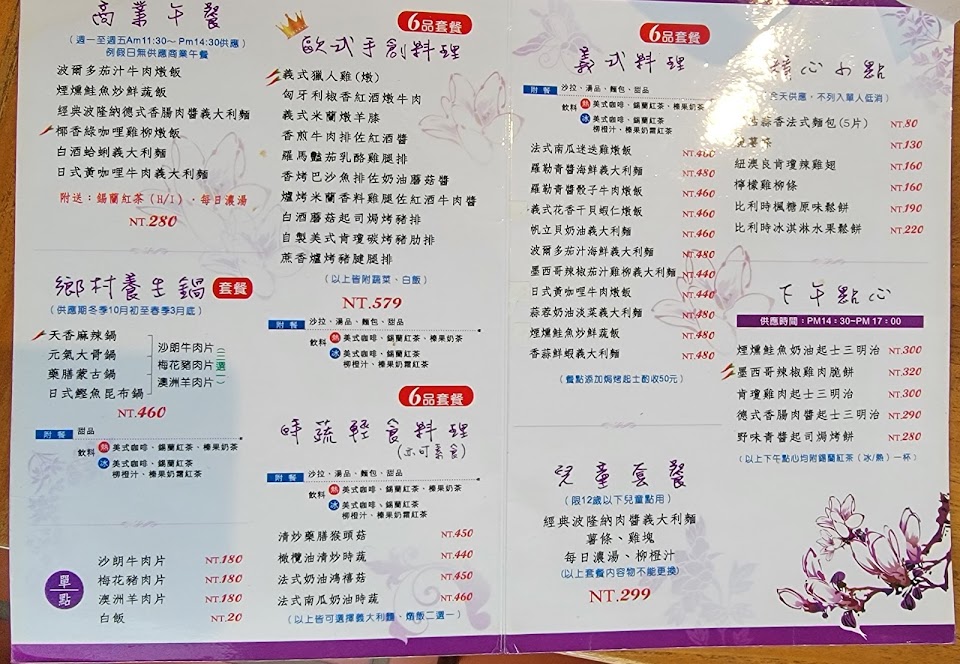 商業午餐
(週一至週五Am11:30～Pm14:30供應)
例假日無供應商業午餐
波爾多茄汁牛肉燉飯
煙燻鮭魚炒鮮蔬飯
經典波隆納德式香腸肉醬義大利麵
椰香綠咖哩雞柳燉飯
白酒蛤蜊義大利麵
日式黃咖哩牛肉義大利麵
附送：錫蘭紅茶(H/I)、每日濃湯
NT.280
鄉村養生鍋 套餐
(供應期冬季10月初至春季3月底)
天香麻辣鍋
元氣大骨鍋
藥膳蒙古鍋
日式鰹魚昆布鍋
沙朗牛肉片
梅花豬肉片
澳洲羊肉片
(三選一)
NT.460
附餐 甜品
飲料 熱 美式咖啡、錫蘭紅茶、榛果奶茶
冰 美式咖啡、錫蘭紅茶
柳橙汁、榛果奶霜紅茶
單點
沙朗牛肉片 NT.180
梅花豬肉片 NT.180
澳洲羊肉片 NT.180
白飯 NT.20
6品套餐
歐式手創料理
義式獵人雞(燉)
匈牙利椒香紅酒燉牛肉
義式米蘭燉羊膝
香煎牛肉排佐紅酒醬
羅馬豔茄乳酪雞腿排
香烤巴沙魚排佐奶油蘑菇醬
爐烤米蘭香料雞腿佐紅酒牛肉醬
白酒蘑菇起司焗烤豬排
自製美式肯瓊碳烤豬肋排
蔗香爐烤豬腱腿排
(以上皆附蔬菜、白飯)
NT.579
附餐 沙拉、湯品、麵包、甜品
飲料 熱 美式咖啡、錫蘭紅茶、榛果奶茶
冰 美式咖啡、錫蘭紅茶
柳橙汁、榛果奶霜紅茶
6品套餐
時蔬輕食料理
(亦可素食)
附餐 沙拉、湯品、麵包、甜品
飲料 熱 美式咖啡、錫蘭紅茶、榛果奶茶
冰 美式咖啡、錫蘭紅茶
柳橙汁、榛果奶霜紅茶
清炒藥膳猴頭菇 NT.450
橄欖油清炒時蔬 NT.440
法式奶油鴻禧菇 NT.450
法式南瓜奶油時蔬 NT.460
(以上皆可選擇義大利麵、燉飯二選一)
6品套餐
義式料理
附餐 沙拉、湯品、麵包、甜品
飲料 熱 美式咖啡、錫蘭紅茶、榛果奶茶
冰 美式咖啡、錫蘭紅茶
柳橙汁、榛果奶霜紅茶
法式南瓜迷迭雞燉飯 NT.460
羅勒青醬海鮮義大利麵 NT.480
羅勒青醬骰子牛肉燉飯 NT.460
義式花香干貝蝦仁燉飯 NT.460
帆立貝奶油義大利麵 NT.460
波爾多茄汁海鮮義大利麵 NT.480
墨西哥辣椒茄汁雞柳義大利麵 NT.440
日式黃咖哩牛肉燉飯 NT.440
蒜蓉奶油淡菜義大利麵 NT.480
煙燻鮭魚炒鮮蔬飯 NT.480
香蒜鮮蝦義大利麵 NT.480
(餐點添加焗烤起士酌收50元)
兒童套餐
(限12歲以下兒童點用)
經典波隆納肉醬義大利麵
薯條、雞塊
每日濃湯、柳橙汁
(以上套餐內容物不能更換)
NT.299
心小點
全天供應，不列入單人低消)
蒜香法式麵包(5片) NT.80
薯條 NT.130
紐澳良肯瓊辣雞翅 NT.160
檸檬雞柳條 NT.160
比利時楓糖原味鬆餅 NT.190
比利時冰淇淋水果鬆餅 NT.220
下午點心
供應時間：PM14：30~PM17：00
煙燻鮭魚奶油起士三明治 NT.300
墨西哥辣椒雞肉脆餅 NT.320
肯瓊雞肉起士三明治 NT.300
德式香腸肉醬起士三明治 NT.290
野味青醬起司焗烤餅 NT.280
(以上下午點心均附錫蘭紅茶(冰/熱)一杯)